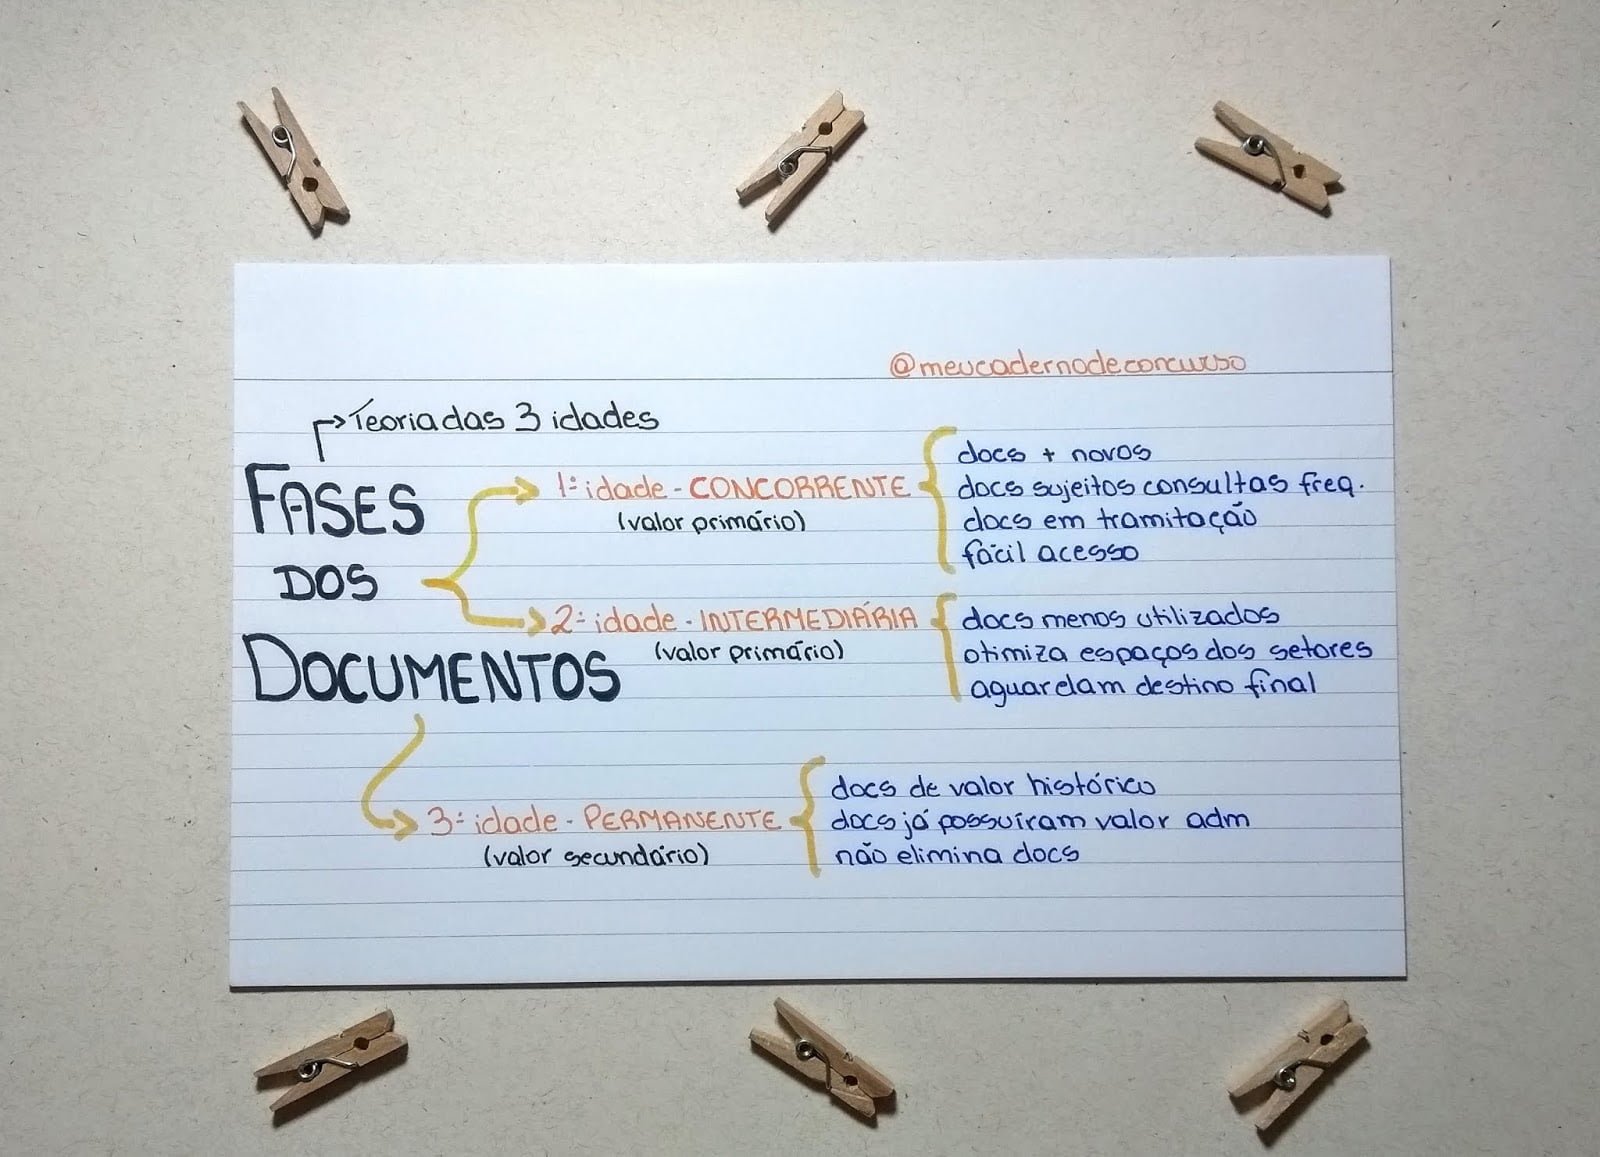 @meucadernodeconcurso
Teoria das 3 idades
FASES
DOS
DOCUMENTOS
1ª idade - CONCORRENTE
(valor primário)
docs + novos
docs sujeitos consultas freq.
docs em tramitação
fácil acesso
2ª idade - INTERMEDIÁRIA
(valor primário)
docs menos utilizados
otimiza espaços dos setores
aguardam destino final
3ª idade - PERMANENTE
(valor secundário)
docs de valor histórico
docs já possuíram valor adm
não elimina docs